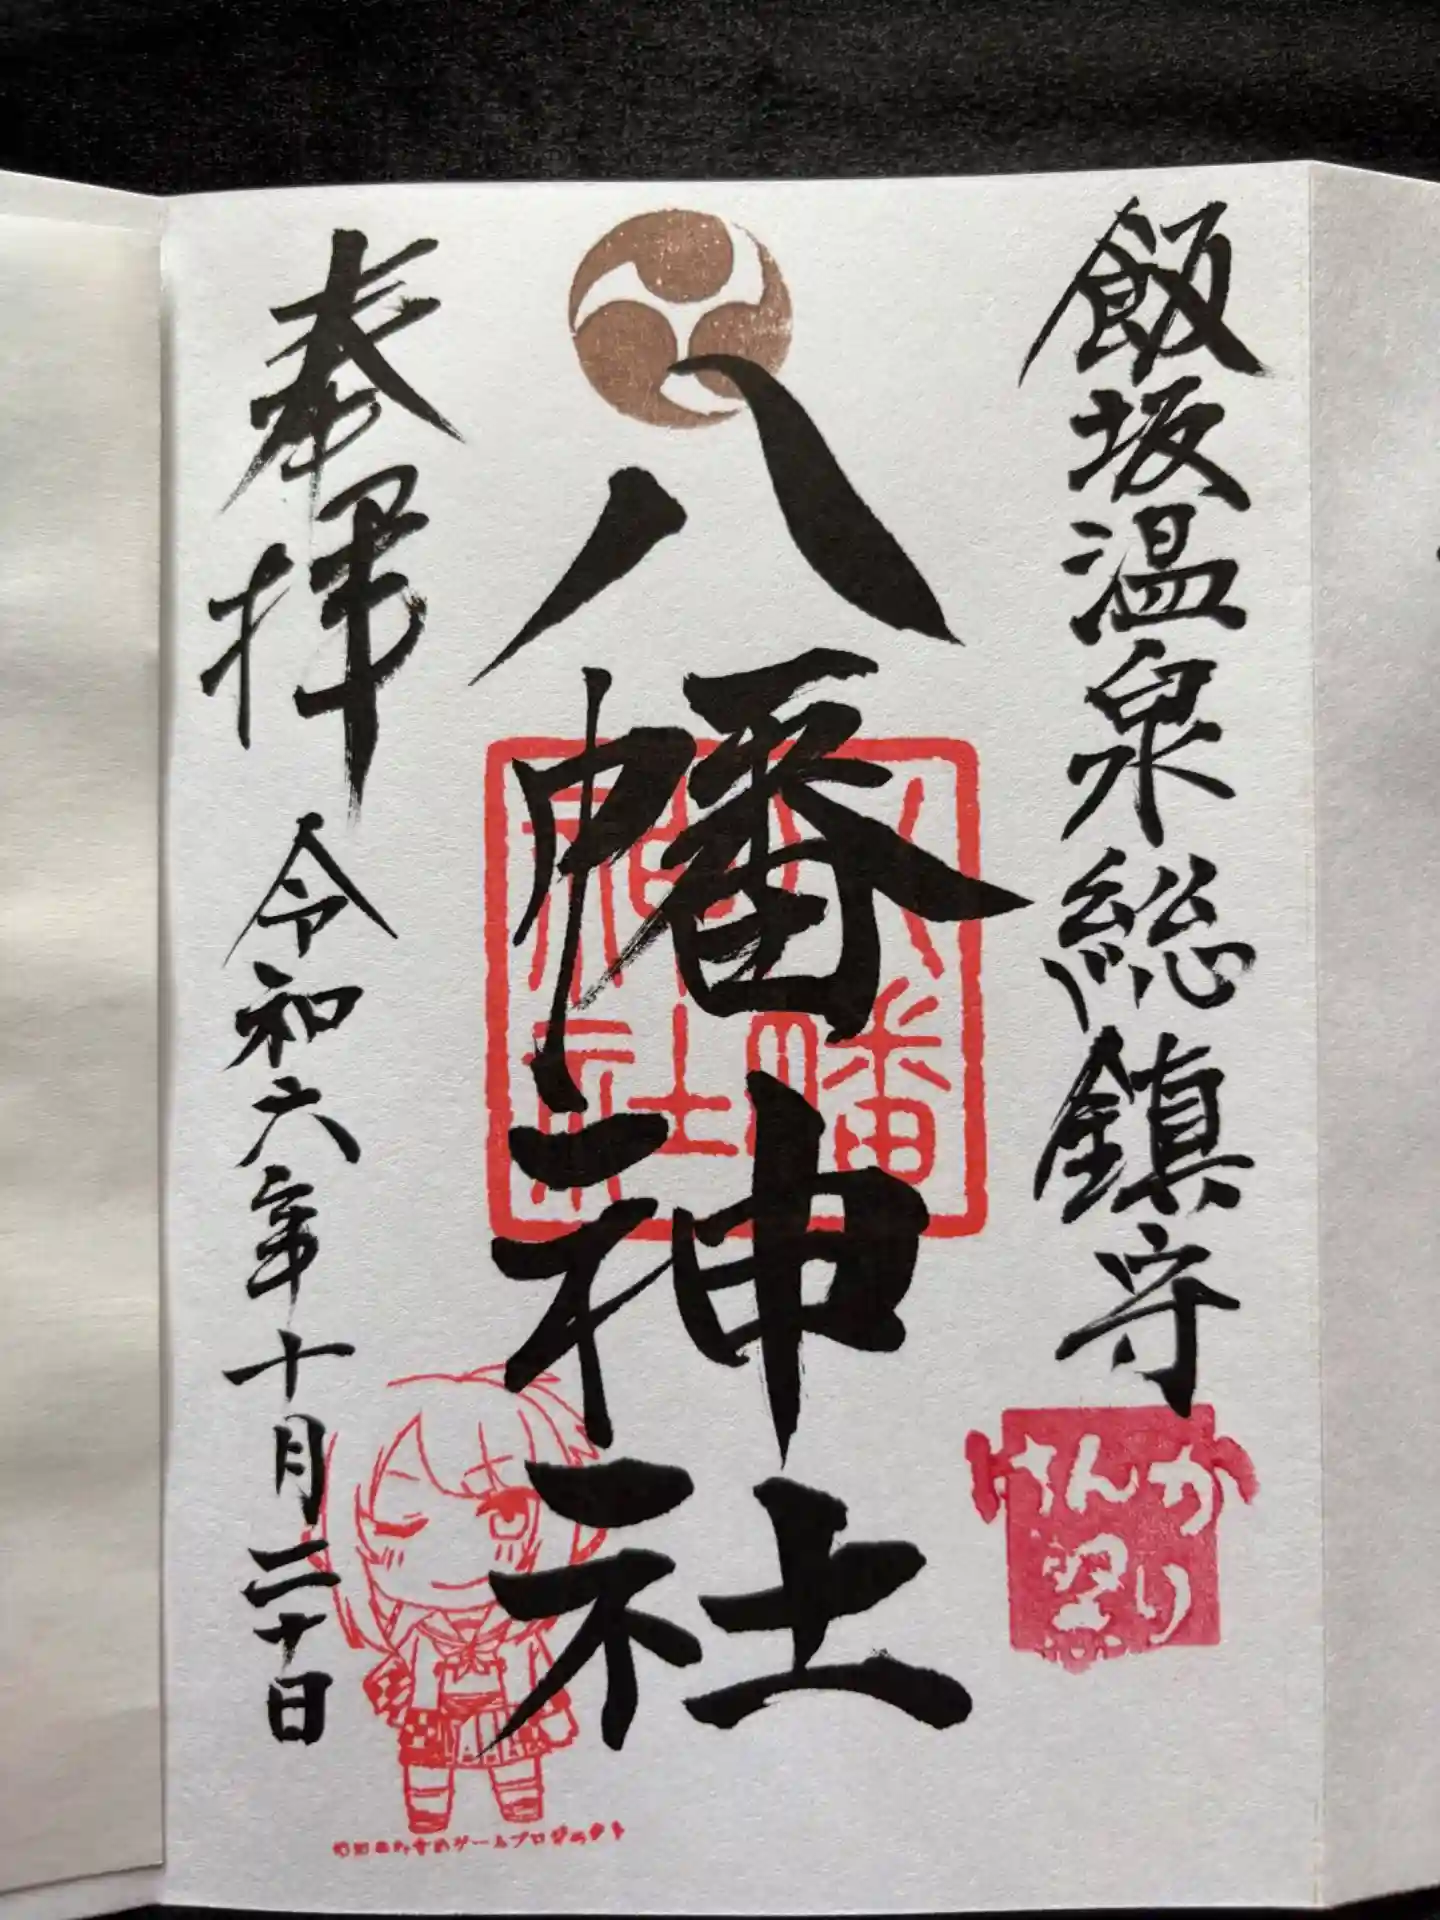 飯坂温泉総鎮守
けんか
祭り
八幡神社
八幡
神社
奉拝
令和六年十月二十日